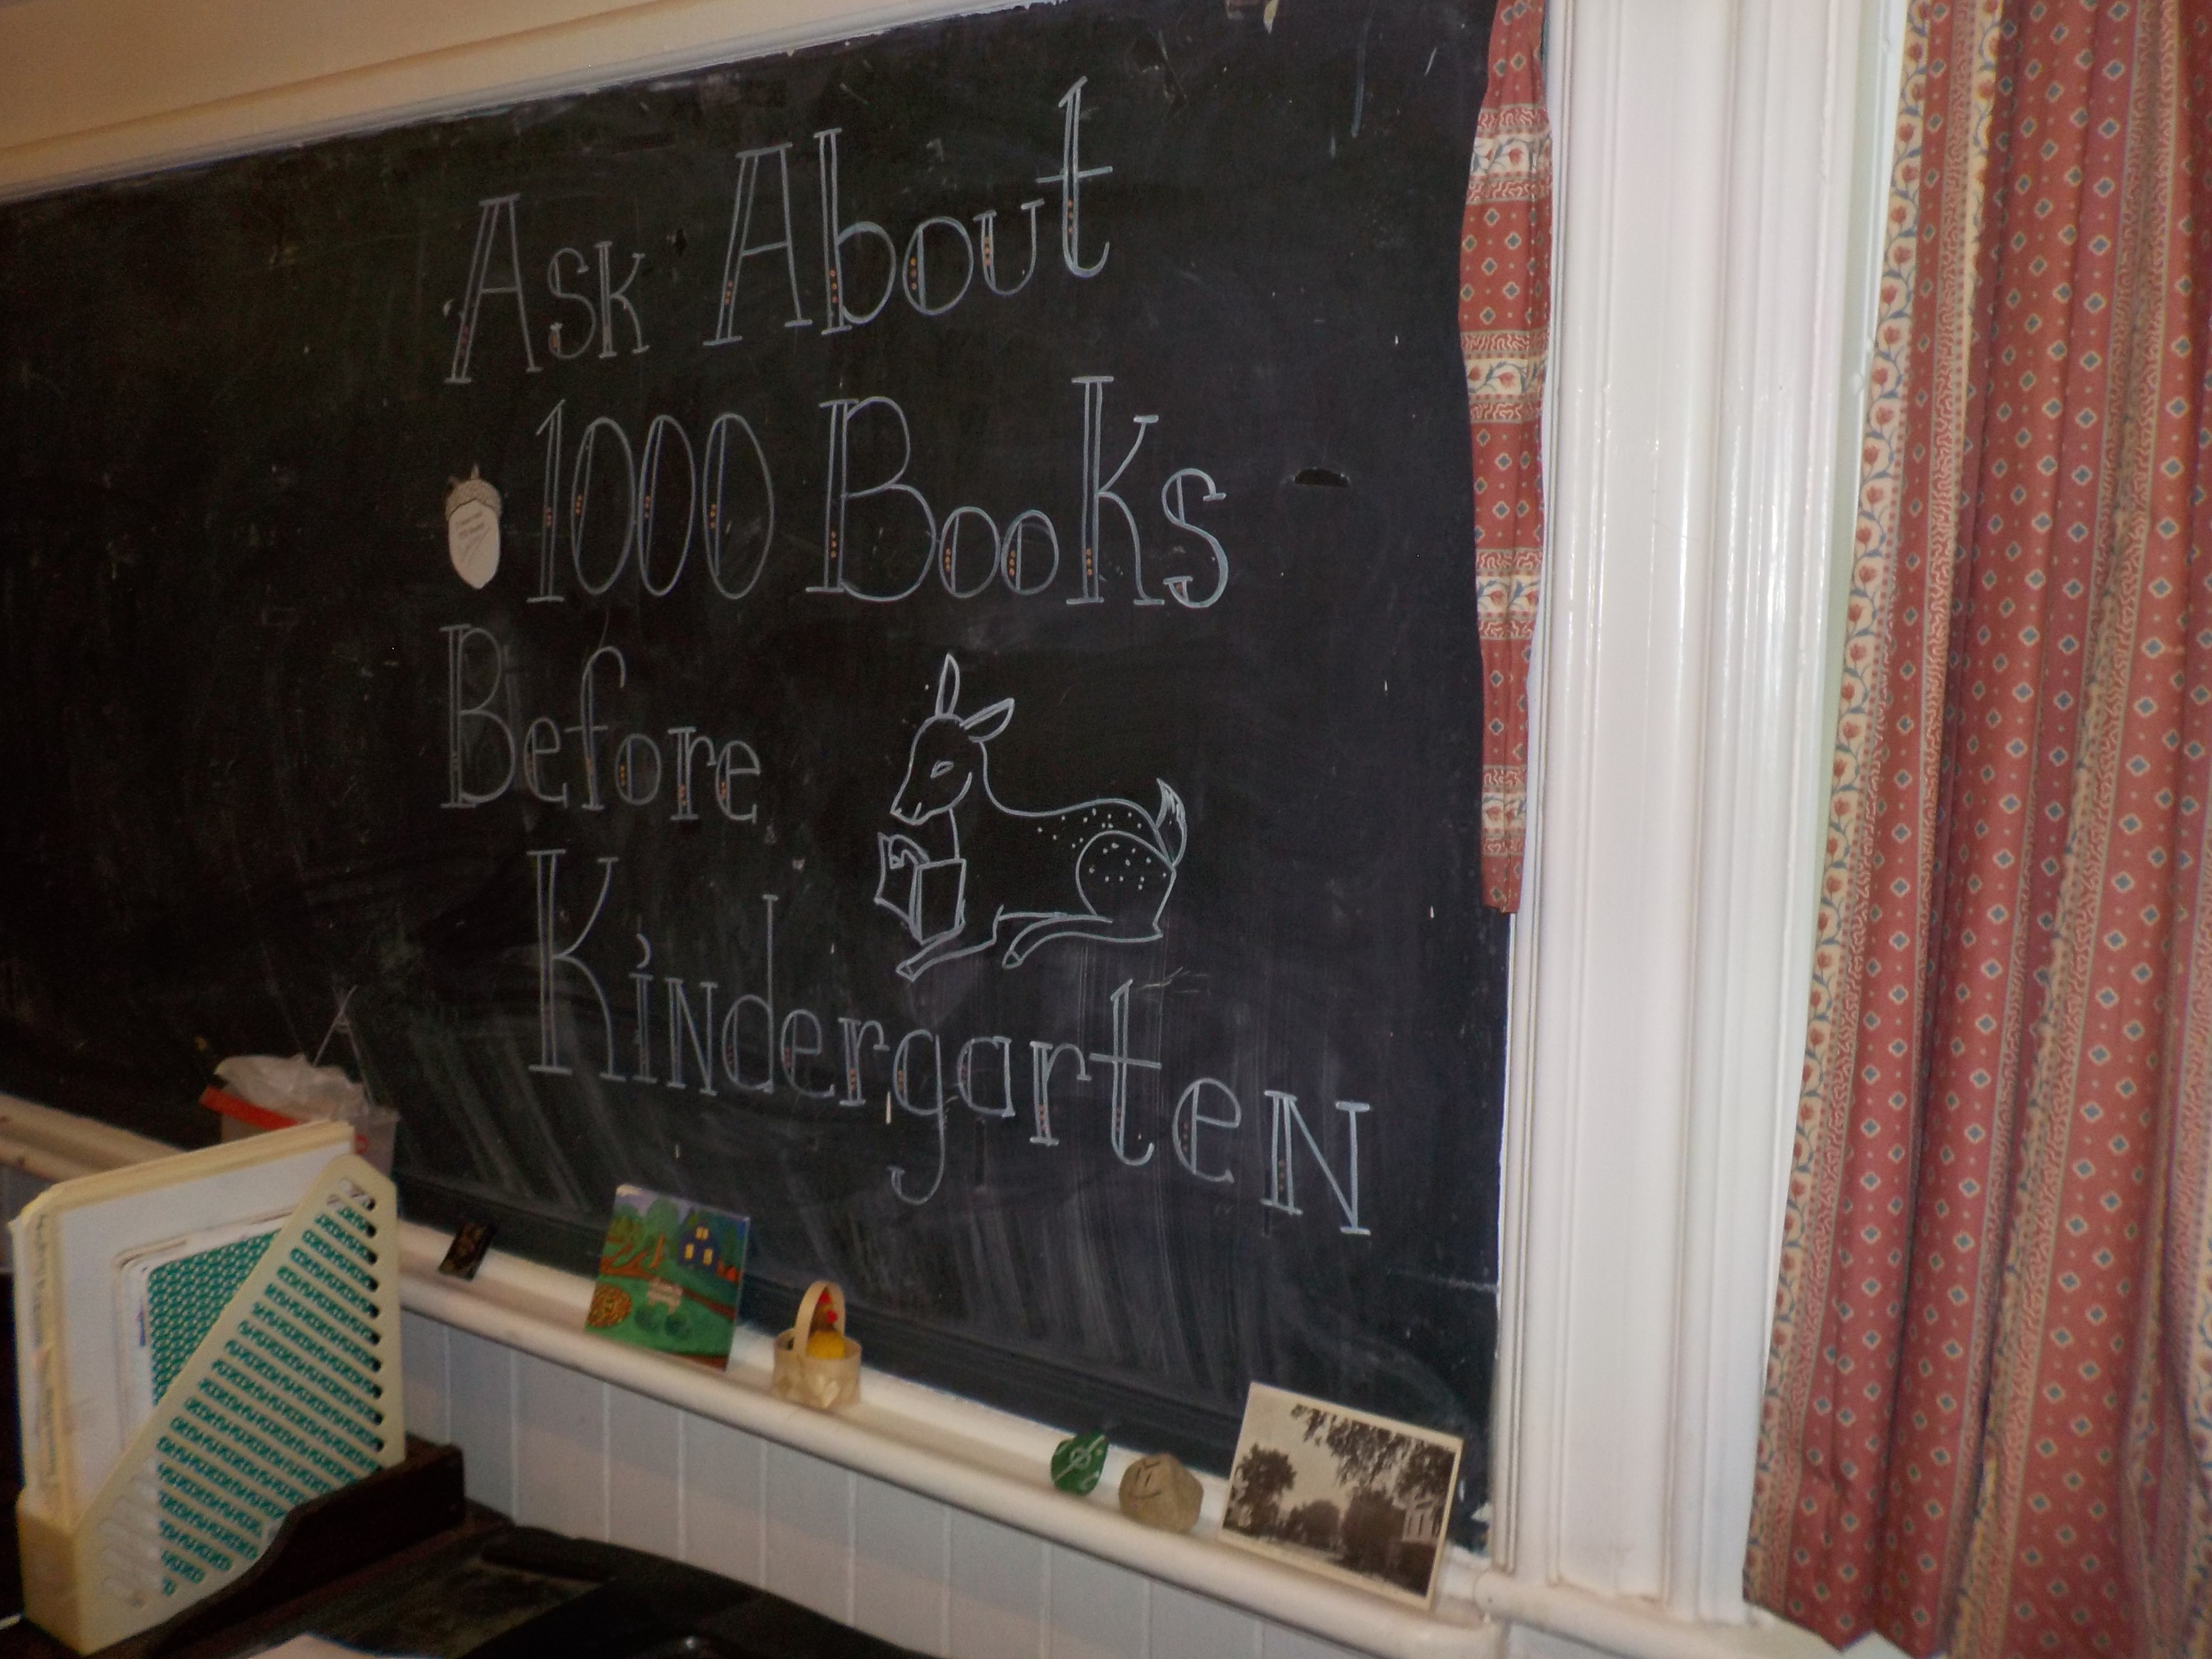 Ask About
1000 Books
Before
Kindergarten